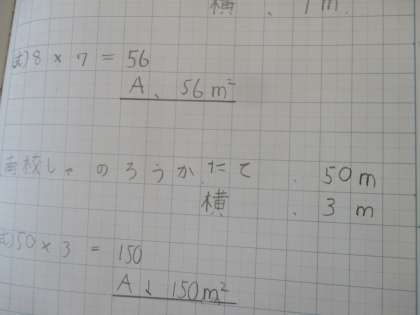 横 . 7m.
(式)8 × 7 = 56
A、56m²
校しゃのろうか たて . 50m
横 . 3m
(式)50 × 3 = 150
A、150m²